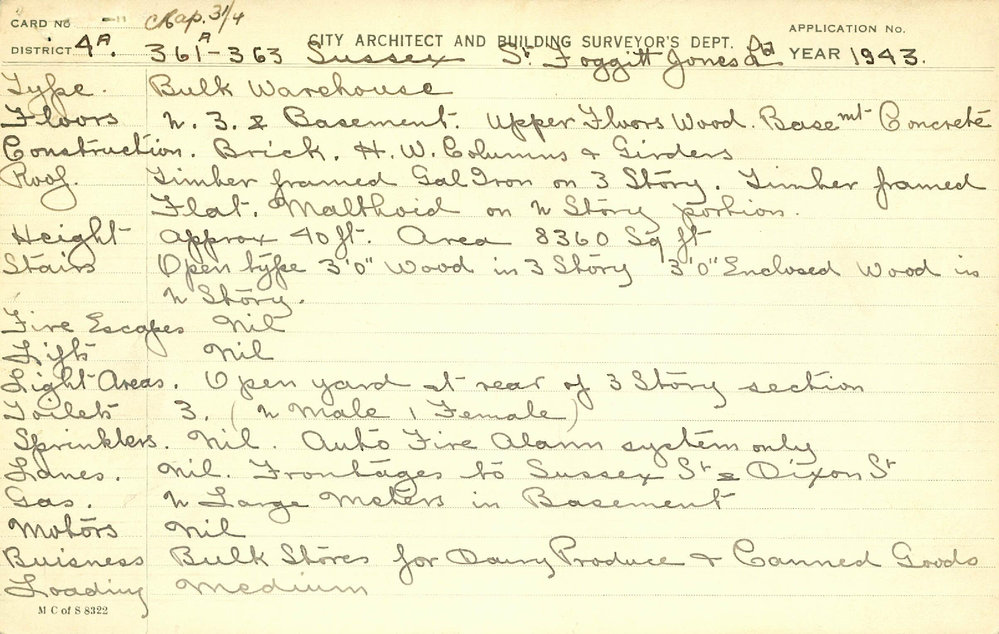 CARD NO Map. 31/4 APPLICATION No.
CITY ARCHITECT AND BUILDING SURVEYOR'S DEPT.
DISTRICT 4A. 361A-363 Sussex St. Foggitt Jones Ltd YEAR 1943.
Type. Bulk Warehouse
Floors 2. 3. & Basement. Upper Floors Wood. Basemt Concrete
Construction. Brick. H.W. Columns & Girders
Roof. Timber framed Gal Iron on 3 Story. Timber framed
Flat. Malthoid on 2 Story portion.
Height approx 40 ft. Area 8360 Sq ft
Stairs Open type 3'0" Wood in 3 Story 3'0" Enclosed Wood in
2 Story.
Fire Escapes Nil
Lifts Nil
Light Areas. Open yard at rear of 3 Story section
Toilets 3. (2 Male 1 Female)
Sprinklers. Nil. Auto Fire Alarm system only
Lanes. Nil. Frontages to Sussex St & Dixon St
Gas. 2 Large Meters in Basement
Motors Nil
Buisness Bulk Stores for Dairy Produce & Canned Goods
Loading Medium
M C of S 8322